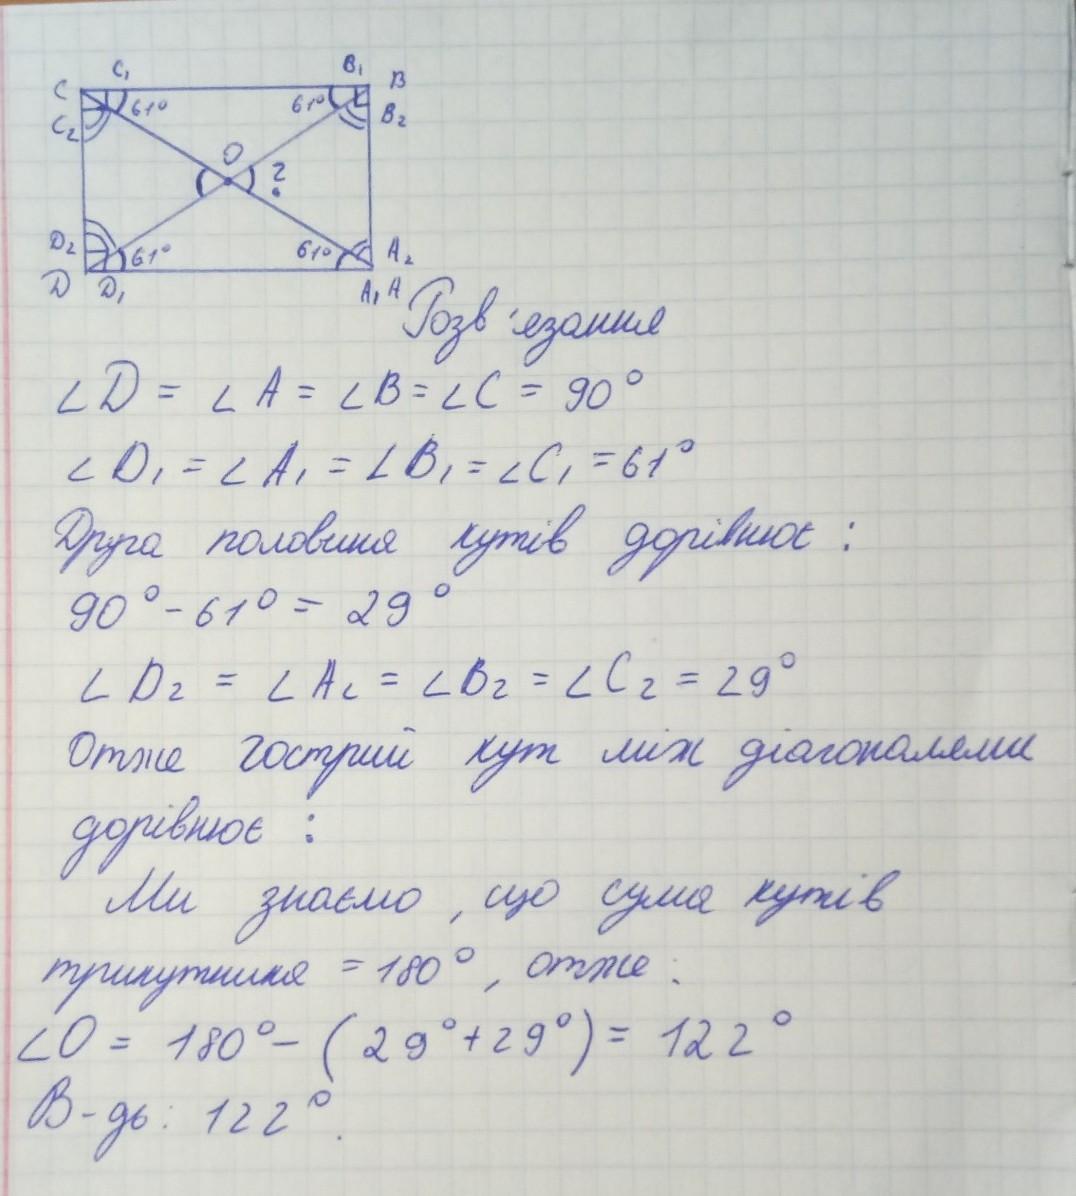 C C₁ B₁ B
C₂ 61° 61° B₂
O ?
D₂ 61° 61° A₂
D D₁ A₁ A
Розв'язання
∠D = ∠A = ∠B = ∠C = 90°
∠D₁ = ∠A₁ = ∠B₁ = ∠C₁ = 61°
Друга половина кутів дорівнює:
90° - 61° = 29°
∠D₂ = ∠A₂ = ∠B₂ = ∠C₂ = 29°
Отже гострий кут між діагоналями
дорівнює:
Ми знаємо, що сума кутів
трикутника = 180°, отже:
∠O = 180° - (29° + 29°) = 122°
В-дь: 122°.